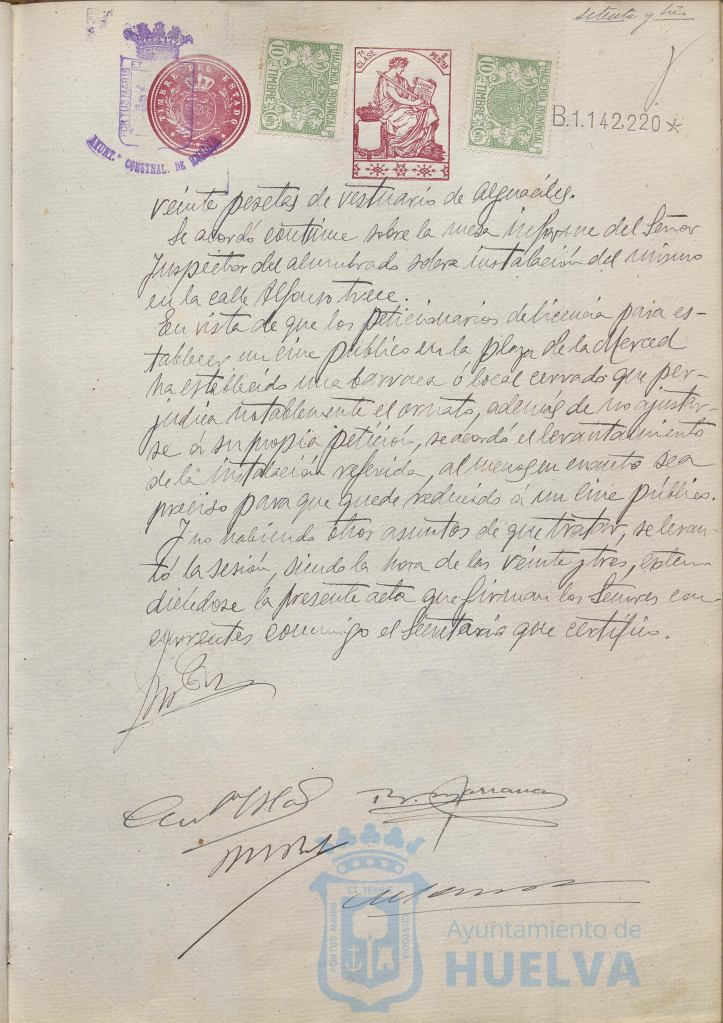 setenta y tres
PORTUS MARIS ET
AYUNT.º CONSTNAL. DE HUELVA
TIMBRE DEL ESTADO
HACIENDA PROVINCIAL
TIMBRE
10
7ª CLASE
2 PESETAS
HACIENDA PROVINCIAL
TIMBRE
10
B.1.142,220*
veinte pesetas de vestuario de Alguaciles.
Se acordó continue sobre la mesa informe del Señor
Inspector del alumbrado sobre instalación del mismo
en la calle Alfonso trece.
En vista de que los peticionarios de licencia para es-
tablecer un cine público en la plaza de la Merced
ha establecido una barraca ó local cerrado que per-
judica notablemente el ornato, además de no ajustar-
se á su propia petición, se acordó el levantamiento
de la instalación referida, al menos en cuanto sea
preciso para que quede reducido á un cine público.
Y no habiendo otros asuntos de que tratar, se levan-
tó la sesión, siendo la hora de las veinte y tres, exten-
diéndose la presente acta que firman los Señores con-
currentes conmigo el Secretario que certifico.
ET TERRE
PORTUS MARIS
CUSTODIA
Ayuntamiento de
HUELVA